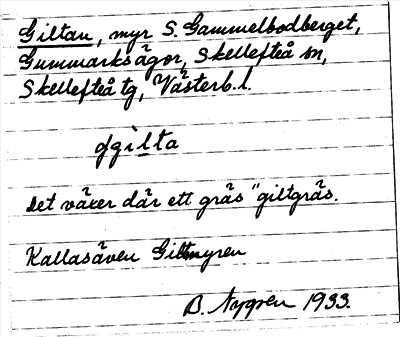 Giltan, myr S. Gammelbodberget,
Gummarksågor, Skellefteå sn,
Skellefteå tg, Västerb. l.
gilta
Det växer där ett gräs "giltgräs.
Kallas även Giltmyren
B. Nygren 1933.